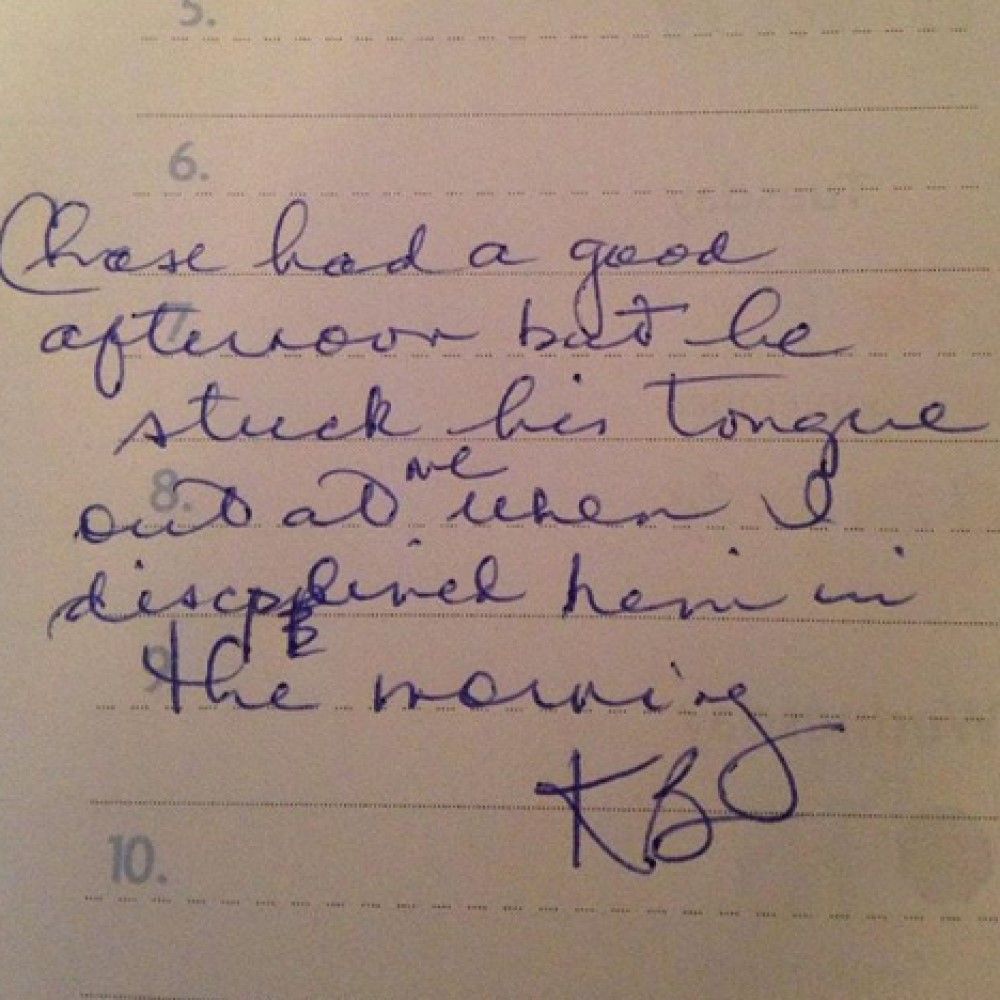 5.
6.
Chase had a good
7.
afternoon but he
stuck his tongue
8.
out at me when I
disciplined him in
9.
the morning
KB
10.